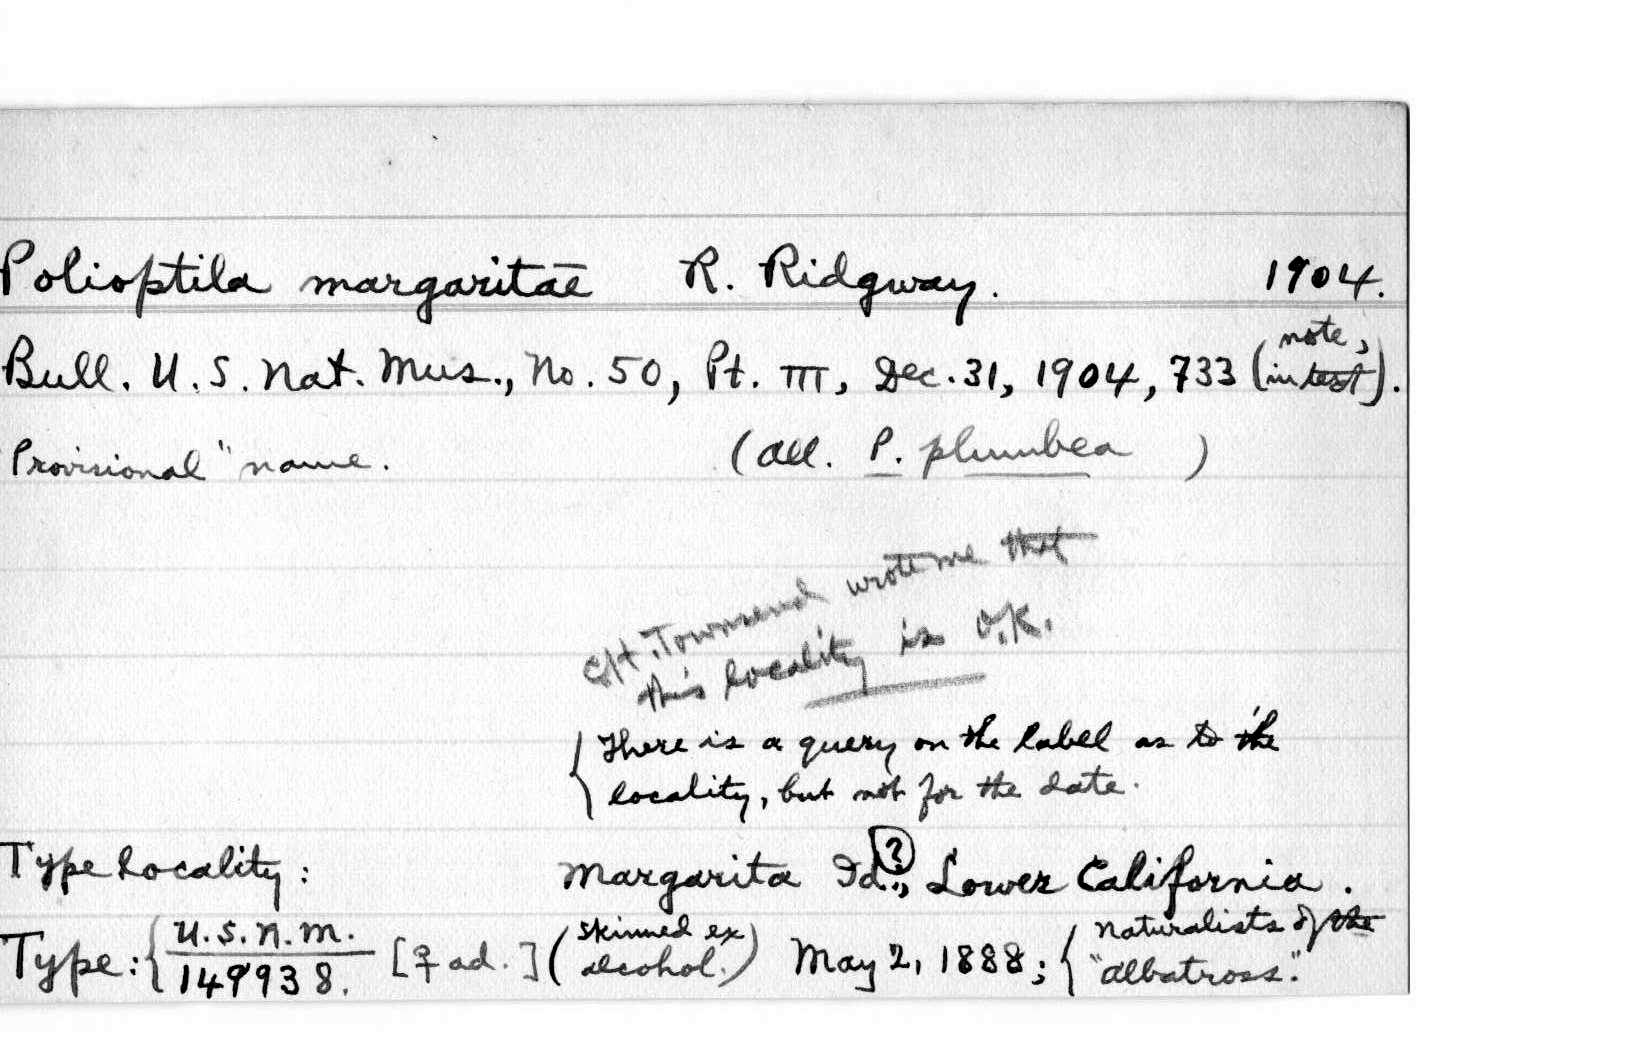 Polioptila margaritae R. Ridgway. 1904.
Bull. U.S. Nat. Mus., No. 50, Pt. III, Dec. 31, 1904, 733 (note, in text).
Provisional" name. (All. P. plumbea )
C.H. Townsend wrote me that
this locality is O.K.
{There is a query on the label as to the
locality, but not for the date.
Type Locality: Margarita Id.?, Lower California.
Type: {U.S.N.M. 149938. [♀ ad.] (skinned ex alcohol.) May 2, 1888; {Naturalists of the "Albatross".